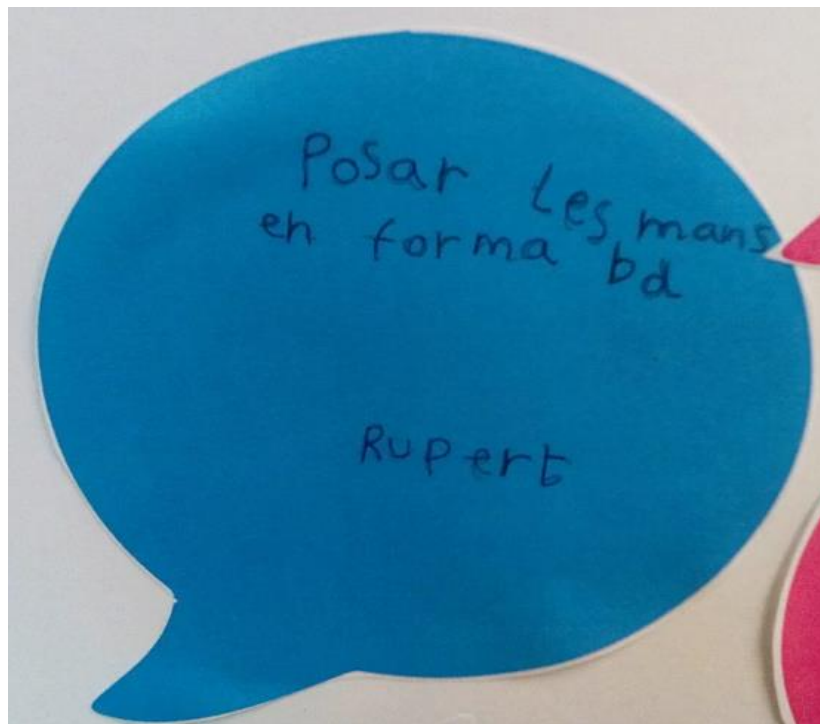 Posar les mans
en forma bd
Rupert